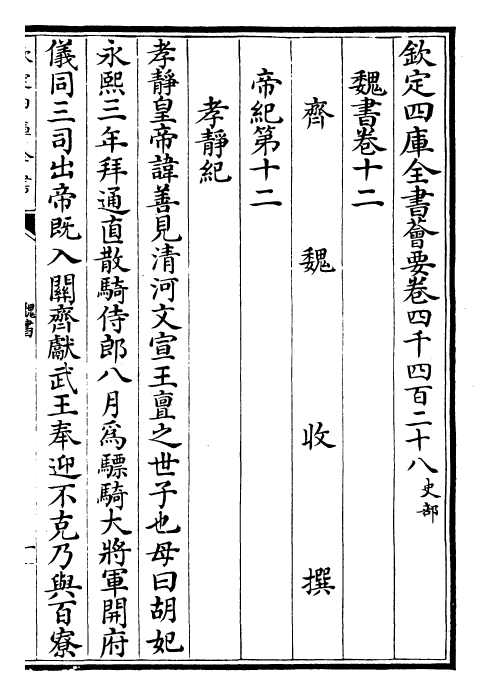 欽定四庫全書薈要卷四千四百二十八史部
魏書卷十二
齊魏收撰
帝紀第十二
孝靜紀
孝靜皇帝諱善見清河文宣王亶之世子也母曰胡妃
永熙三年拜通直散騎侍郎八月為驃騎大將軍開府
儀同三司出帝既入關齊獻武王奉迎不克乃與百寮
魏書